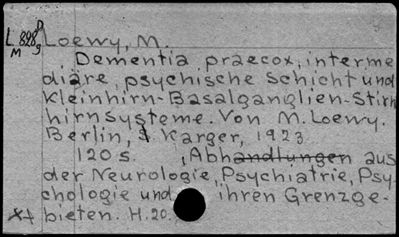 L 898 D
M g
Loewy, M.
Dementia praecox, interme
diäre psychische Schicht und
Kleinhirn-Basalganglien-Stirn
hirnsysteme. Von M. Loewy.
Berlin, S. Karger, 1923.
120 s. , Abhandlungen aus
der Neurologie, Psychiatrie, Psy-
chologie und ihren Grenzge-
bieten. H. 20.